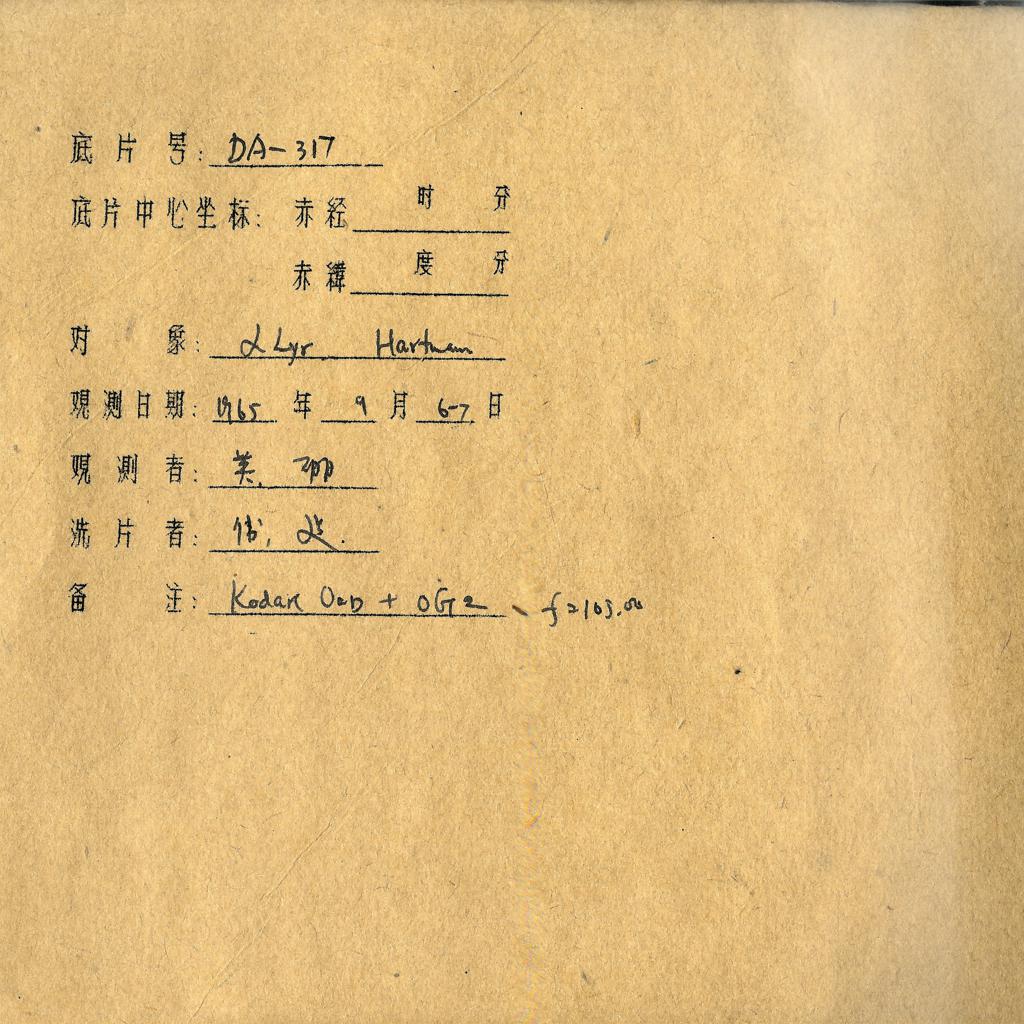 底片号: DA-317
底片中心坐标: 赤经 时 分
赤緯 度 分
对象: α Lyr Hartman
观测日期: 1965 年 9 月 6-7 日
观测者: 美.
洗片者:
备注: Kodak OaD + OG2、f=2103.00